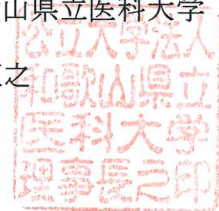 山県立医科大学
之
公立大学法人
和歌山県立
医科大学
理事長之印